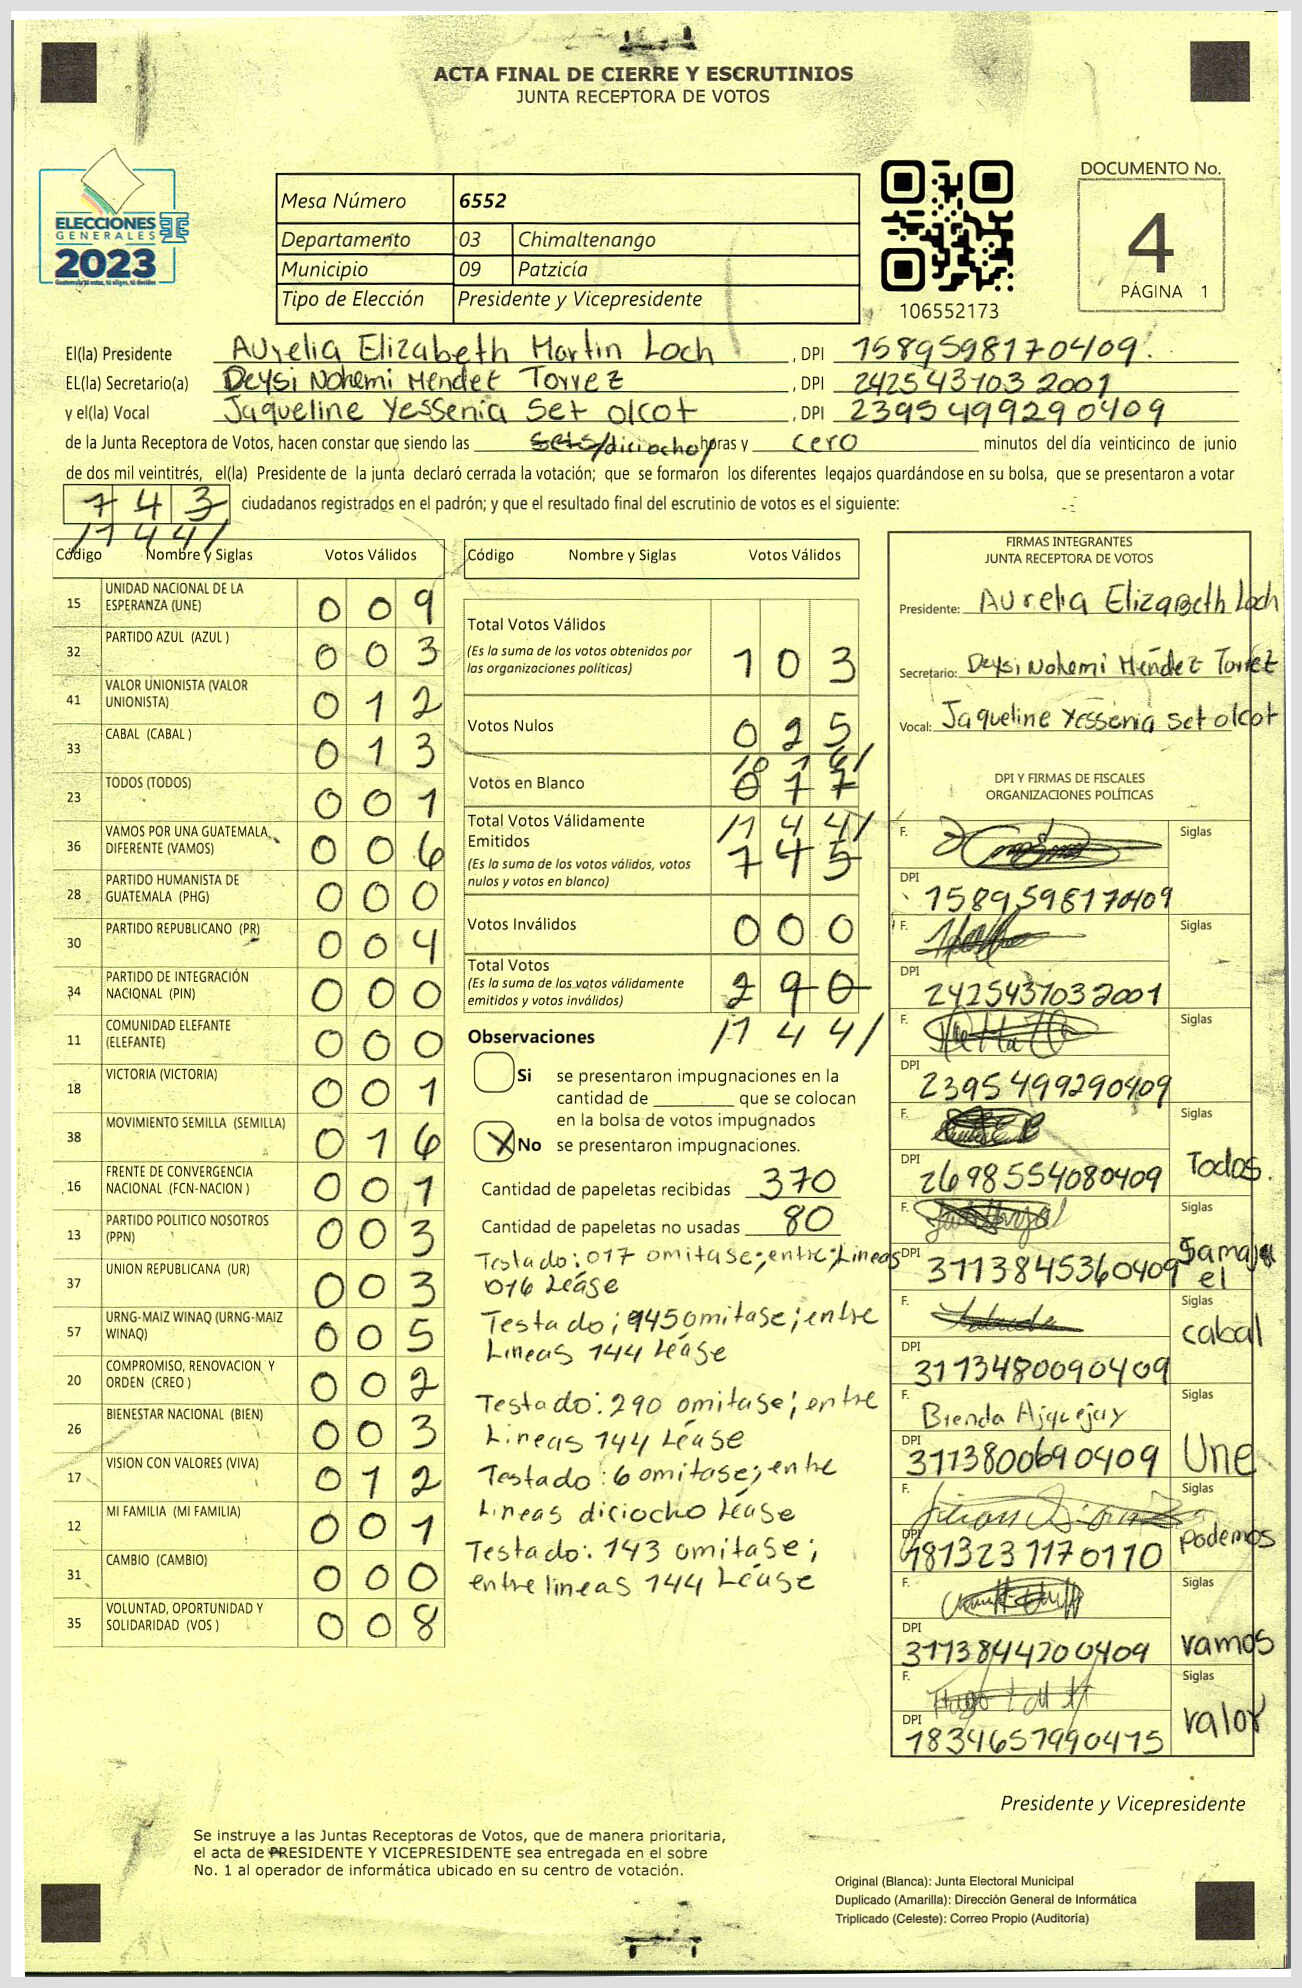 ACTA FINAL DE CIERRE Y ESCRUTINIOS
JUNTA RECEPTORA DE VOTOS
ELECCIONES
GENERALES
2023
Mesa Número 6552
Departamento 03 Chimaltenango
Municipio 09 Patzicía
Tipo de Elección Presidente y Vicepresidente
106552173
DOCUMENTO No.
4
PÁGINA 1
El(la) Presidente Aurelia Elizabeth Martin Loch , DPI 1589598170409.
EL(la) Secretario(a) Deysi Nohemi Mendet Torrez , DPI 2425437032001
y el(la) Vocal Jaqueline Yessenia Set olcot , DPI 2395499290409
de la Junta Receptora de Votos, hacen constar que siendo las /diciocho/ horas y cero minutos del día veinticinco de junio
de dos mil veintitrés, el(la) Presidente de la junta declaró cerrada la votación; que se formaron los diferentes legajos quardándose en su bolsa, que se presentaron a votar
743 ciudadanos registrados en el padrón; y que el resultado final del escrutinio de votos es el siguiente:
/144/
Código Nombre y Siglas Votos Válidos
15 UNIDAD NACIONAL DE LA ESPERANZA (UNE) 009
32 PARTIDO AZUL (AZUL ) 003
41 VALOR UNIONISTA (VALOR UNIONISTA) 012
33 CABAL (CABAL ) 013
23 TODOS (TODOS) 001
36 VAMOS POR UNA GUATEMALA DIFERENTE (VAMOS) 006
28 PARTIDO HUMANISTA DE GUATEMALA (PHG) 000
30 PARTIDO REPUBLICANO (PR) 004
34 PARTIDO DE INTEGRACIÓN NACIONAL (PIN) 000
11 COMUNIDAD ELEFANTE (ELEFANTE) 000
18 VICTORIA (VICTORIA) 001
38 MOVIMIENTO SEMILLA (SEMILLA) 016
16 FRENTE DE CONVERGENCIA NACIONAL (FCN-NACION ) 001
13 PARTIDO POLITICO NOSOTROS (PPN) 003
37 UNION REPUBLICANA (UR) 003
57 URNG-MAIZ WINAQ (URNG-MAIZ WINAQ) 005
20 COMPROMISO, RENOVACION Y ORDEN (CREO ) 002
26 BIENESTAR NACIONAL (BIEN) 003
17 VISION CON VALORES (VIVA) 012
12 MI FAMILIA (MI FAMILIA) 001
31 CAMBIO (CAMBIO) 000
35 VOLUNTAD, OPORTUNIDAD Y SOLIDARIDAD (VOS ) 008
Código Nombre y Siglas Votos Válidos
Total Votos Válidos 103
(Es la suma de los votos obtenidos por
las organizaciones políticas)
Votos Nulos 025
/016/
Votos en Blanco 077
Total Votos Válidamente /144/
Emitidos 745
(Es la suma de los votos válidos, votos
nulos y votos en blanco)
Votos Inválidos 000
Total Votos 290
(Es la suma de los votos válidamente
emitidos y votos inválidos)
/144/
Observaciones
Si se presentaron impugnaciones en la
cantidad de ________ que se colocan
en la bolsa de votos impugnados
X No se presentaron impugnaciones.
Cantidad de papeletas recibidas 370
Cantidad de papeletas no usadas 80
Testado: 017 omitase; entre; Lineas
016 Léase
Testado; 945 omitase; entre
Lineas 144 Léase
Testado: 290 omitase; entre
Lineas 144 Léase
Testado: 6 omitase; entre
Lineas diciocho Léase
Testado: 143 omitase;
entre lineas 144 Léase
FIRMAS INTEGRANTES
JUNTA RECEPTORA DE VOTOS
Presidente: Aurelia Elizabeth Loch
Secretario: Deysi Nohemi Méndez Torrez
Vocal: Jaqueline Yessenia Set olcot
DPI Y FIRMAS DE FISCALES
ORGANIZACIONES POLÍTICAS
F. Siglas
DPI 1589598170409
F. Siglas
DPI 2425437032001
F. Siglas
DPI 2395499290409
F. Siglas
DPI 2698554080409 Todos.
F. Siglas
DPI 3113845360409 Samaja el
F. Siglas
DPI 3113480090409 cabal
F. Brenda Ajquejay Siglas
DPI 3113800690409 Une
F. Siglas
DPI 1813231170110 podemos
F. Siglas
DPI 3113844200409 vamos
F. Siglas
DPI 1834657990415 valor
Presidente y Vicepresidente
Se instruye a las Juntas Receptoras de Votos, que de manera prioritaria,
el acta de PRESIDENTE Y VICEPRESIDENTE sea entregada en el sobre
No. 1 al operador de informática ubicado en su centro de votación.
Original (Blanca): Junta Electoral Municipal
Duplicado (Amarilla): Dirección General de Informática
Triplicado (Celeste): Correo Propio (Auditoría)